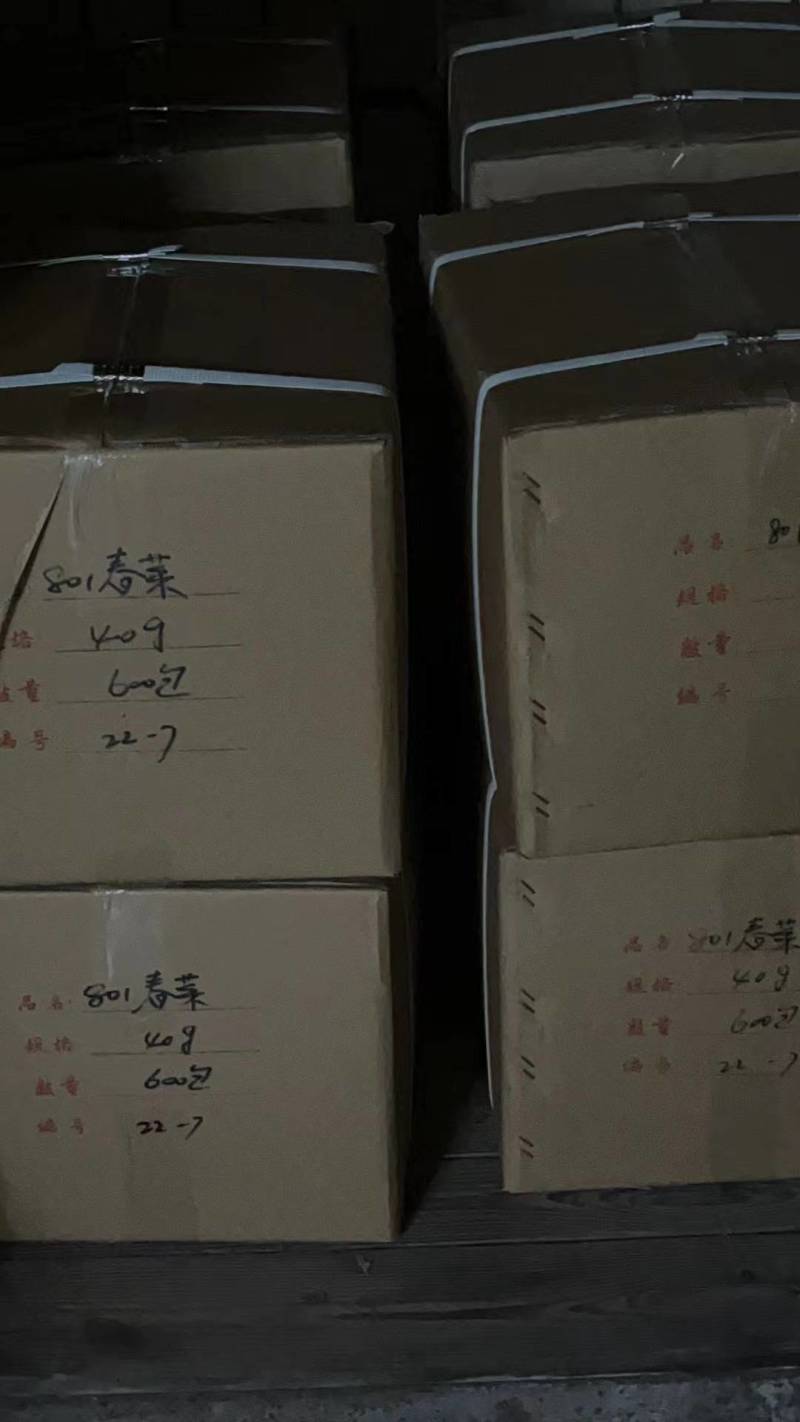 801春菜
规格 40g
数量 600包
编号 22-7
品名 801
规格
数量
编号
品名 801春菜
规格 40g
数量 600包
编号 22-7
品名 801春菜
规格 40g
数量 600包
编号 22-7